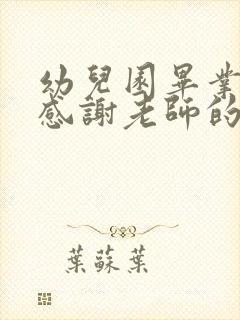 幼兒園畢業
感謝老師的
葉蘇葉